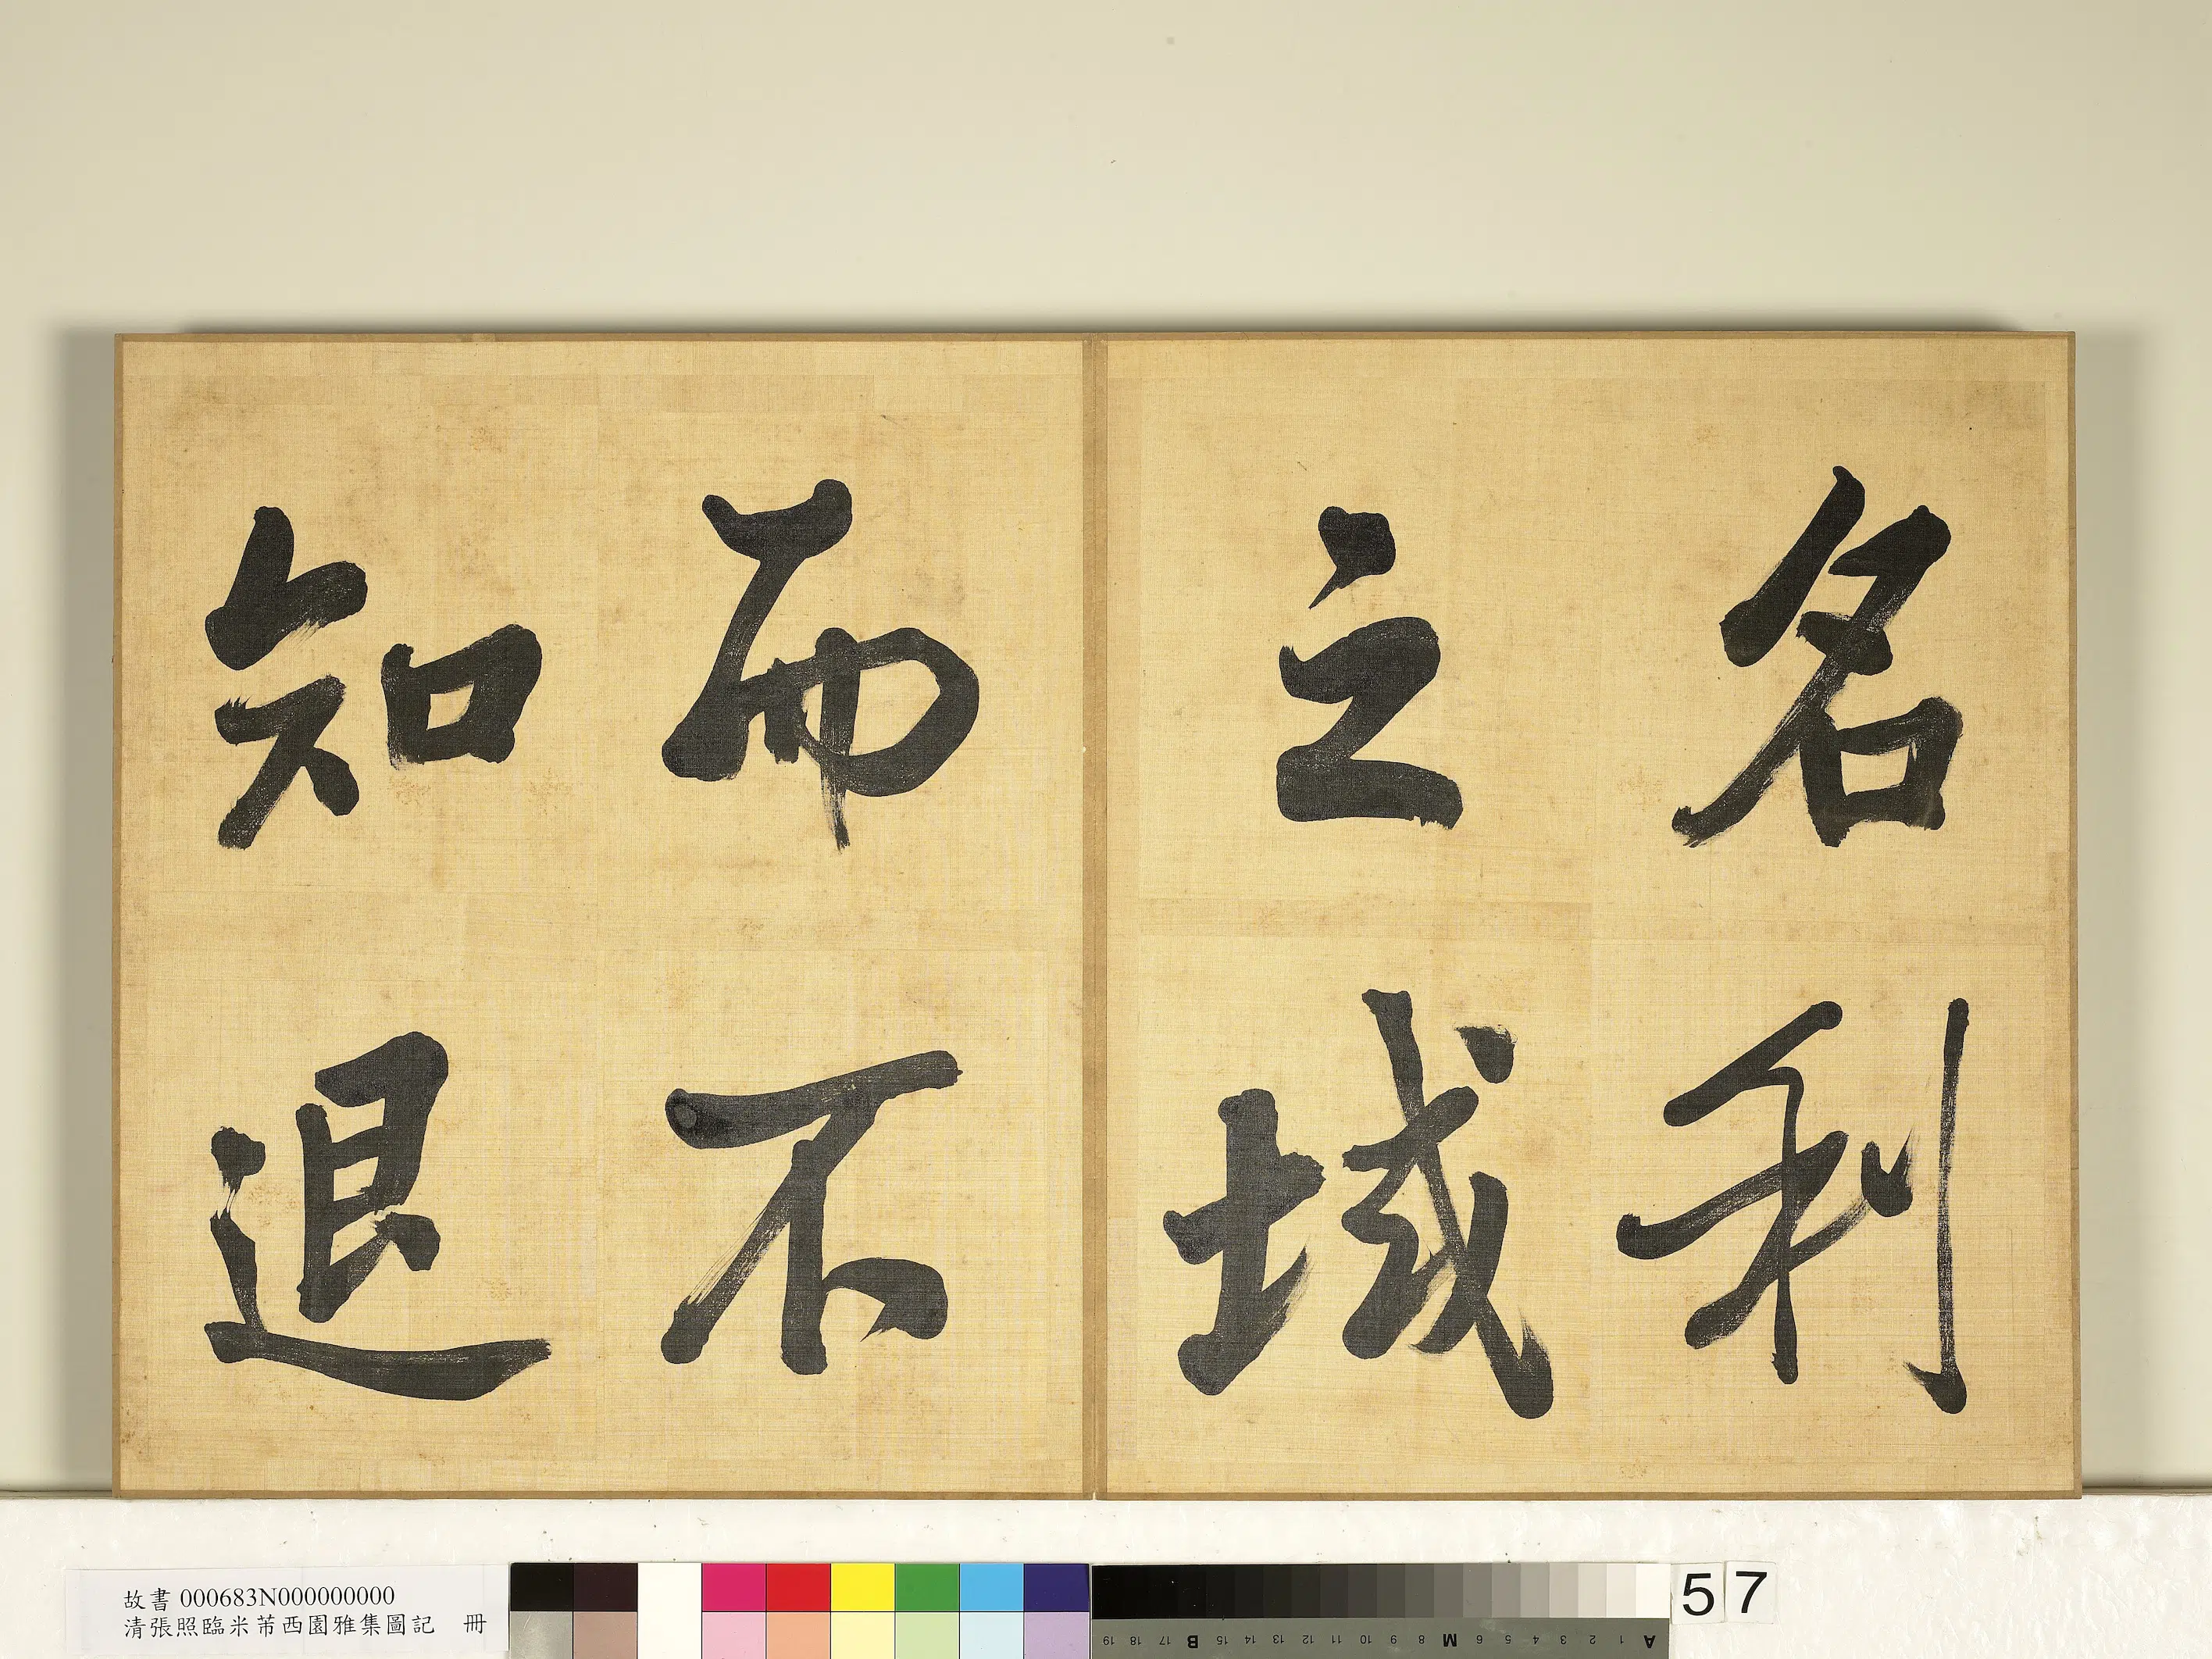 名利
之域
而不
知退
故書 000683N000000000
清張照臨米芾西園雅集圖記　冊
19 18 17 B 15 14 13 12 11 10 9 8 M 6 5 4 3 2 1 A
57